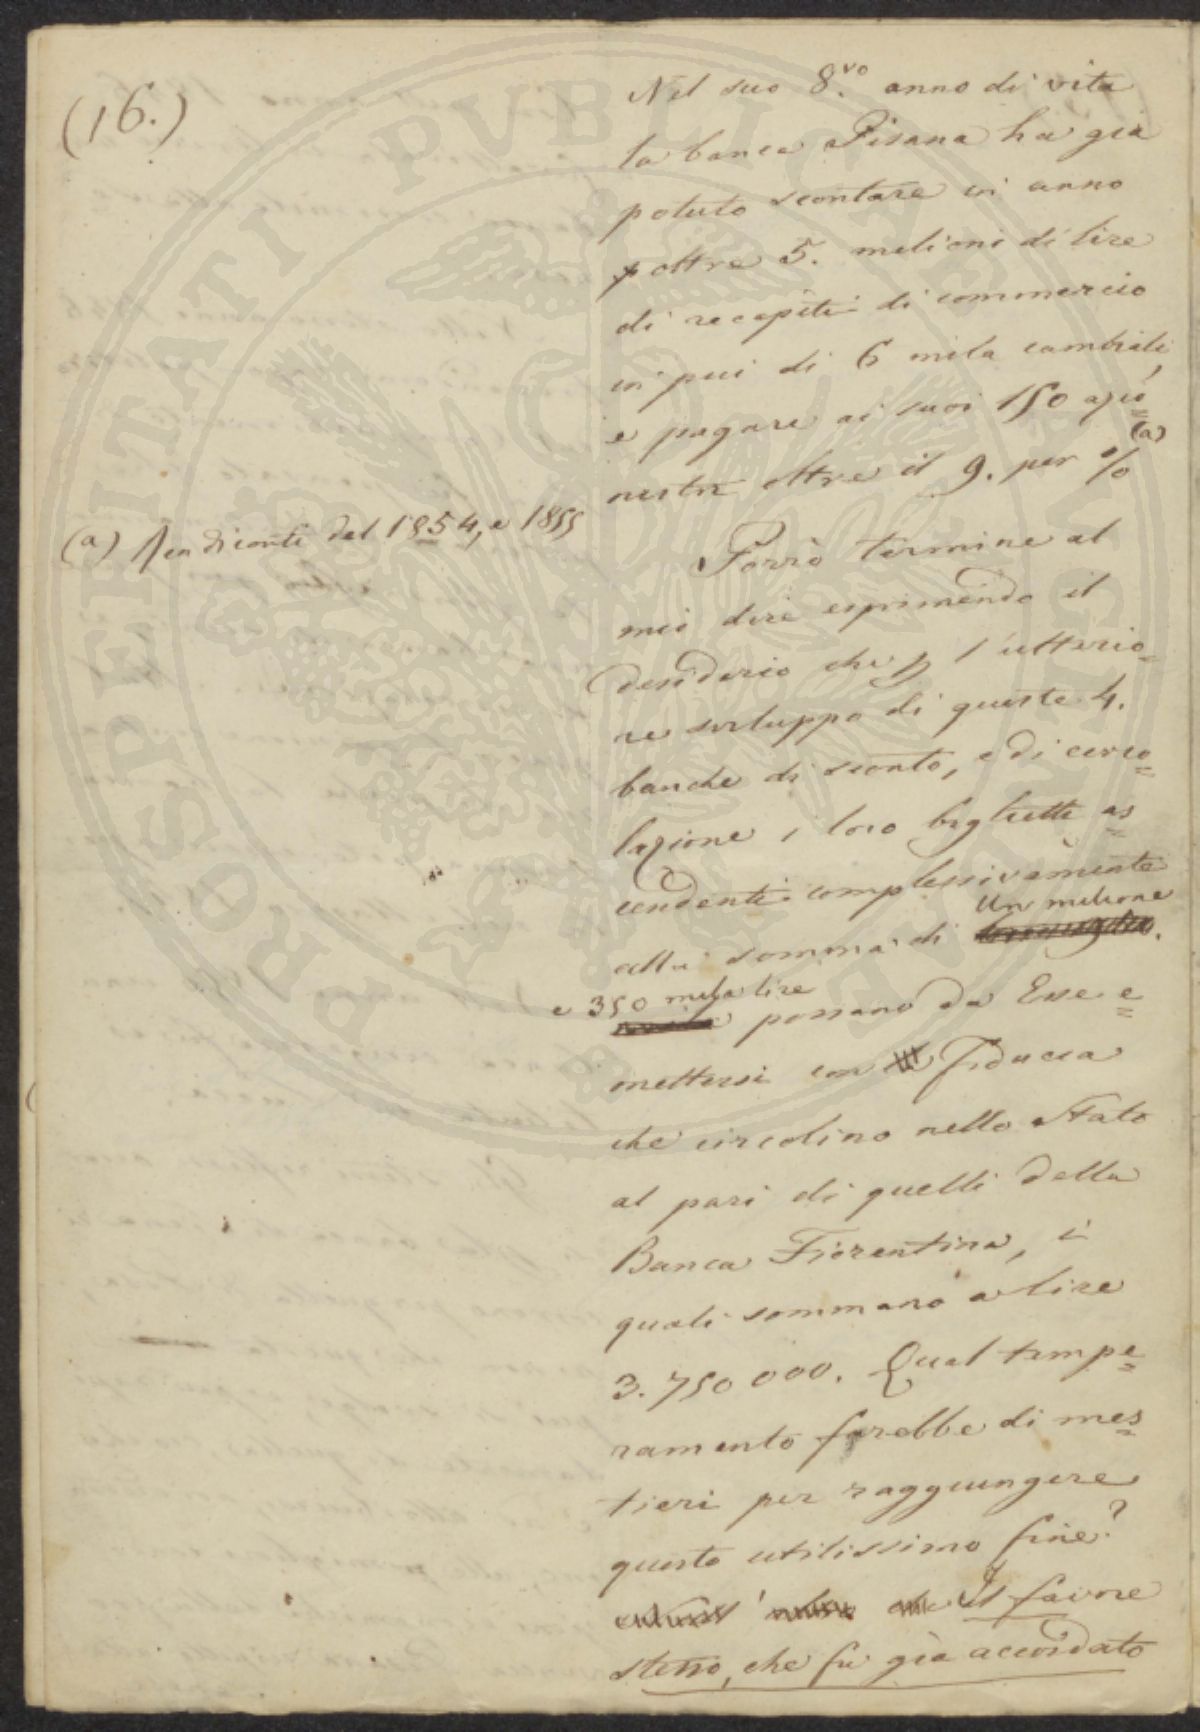 (16.)
Nel suo 8.vo anno di vita
la banca Pisana ha già
potuto scontare in anno
oltre 5. milioni di lire
di recapiti di commercio
in più di 6 mila cambiali,
e pagare ai suoi 150 azio=
nisti oltre il 9. per % (a)
(a) Rendiconti del 1854, e 1855
Porrò termine al
mio dire esprimendo il
desiderio che p l'ulterio=
re sviluppo di queste 4.
banche di sconto, e di circo=
lazione i loro biglietti as=
cendenti complessivamente
alla somma di un milione
e 350 mila lire possano da Esse e=
mettersi con fiducia
che circolino nello Stato
al pari di quelli della
Banca Fiorentina, i
quali sommano a lire
3.750 000. Qual tempe=
ramento farebbe di mes=
tieri per raggiungere
questo utilissimo fine?
Il favore
stesso, che fu già accordato
PROSPERITATI PUBLICAE AUGENDAE